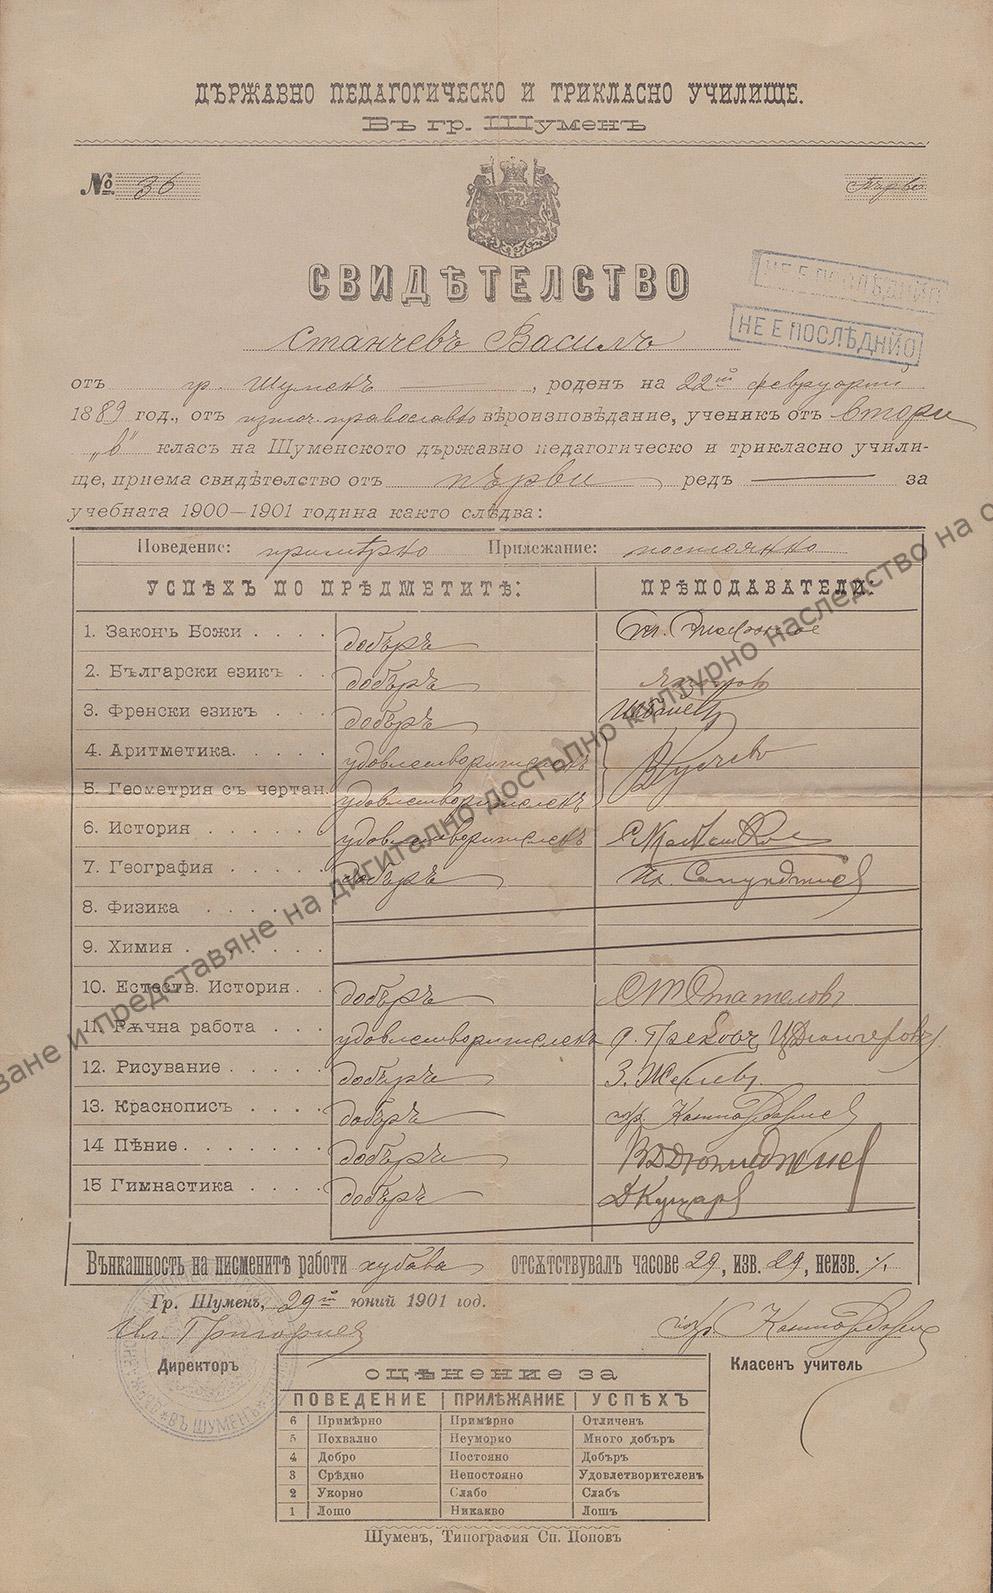 ДЪРЖАВНО ПЕДАГОГИЧЕСКО И ТРИКЛАСНО УЧИЛИЩЕ.
Въ гр. Шуменъ
№ 36
СВИДѢТЕЛСТВО
НЕ Е ПОСЛѢДНИЙО
НЕ Е ПОСЛѢДНИЙО
Станчевъ Василъ
отъ гр. Шуменъ, роденъ на 22ий февруарий
1889 год., отъ източ. православно вѣроизповѣдание, ученикъ отъ втори
„в" класъ на Шуменското държавно педагогическо и трикласно учили-
ще, приема свидѣтелство отъ първи редъ за
учебната 1900—1901 година както слѣдва:
Поведение: примѣрно Прилежание: постоянно
УСПѢХЪ ПО ПРѢДМЕТИТѢ: ПРѢПОДАВАТЕЛИ:
1. Законъ Божи . . . . добъръ
2. Български езикъ . . добъръ
3. Френски езикъ . . . добъръ
4. Аритметика. . . . . удовлетворителенъ
5. Геометрия съ чертан. удовлетворителенъ
6. История . . . . . удовлетворителенъ
7. География . . . . . добъръ
8. Физика . . . . .
9. Химия . . . . . .
10. Естеств. История . . добъръ
11. Рѫчна работа . . . удовлетворителенъ
12. Рисувание . . . . . добъръ З. Желевъ
13. Краснописъ . . . . добъръ
14 Пѣние . . . . . . . добъръ
15 Гимнастика . . . . добъръ
Вънкашность на писменитѣ работи хубава отсѫтствувалъ часове 29, изв. 29, неизв. %.
Гр. Шуменъ, 29ий юний 1901 год.
Ил. Григориев
Директоръ Класенъ учитель
ВЪ ШУМЕНЪ
ОЦѢНЕНИЕ ЗА
ПОВЕДЕНИЕ ПРИЛѢЖАНИЕ УСПѢХЪ
6 Примѣрно Примѣрно Отличенъ
5 Похвално Неуморно Много добъръ
4 Добро Постояно Добъръ
3 Срѣдно Непостояно Удовлетворителенъ
2 Укорно Слабо Слабъ
1 Лошо Никакво Лошъ
Шуменъ, Типография Сп. Поповъ
ване и представяне на дигитално достъпно културно наследство на о